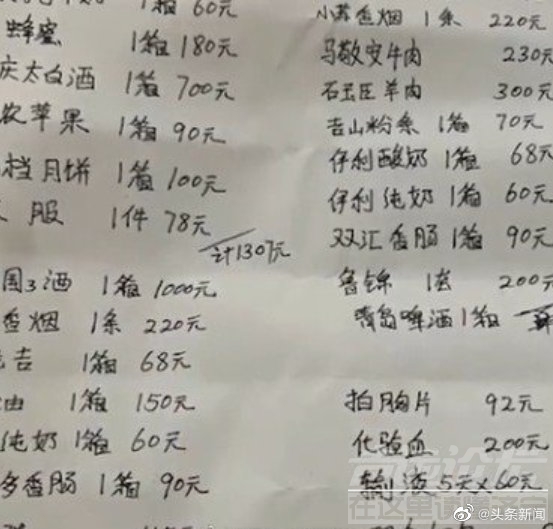 1箱 60元
蜂蜜 1箱 180元
庆太白酒 1箱 700元
农苹果 1箱 90元
档月饼 1箱 100元
服 1件 78元
计1307元
国3酒 1箱 1000元
香烟 1条 220元
吉 1箱 68元
油 1箱 150元
纯奶 1箱 60元
多香肠 1箱 90元
小苏香烟 1条 220元
马敬安牛肉 230元
石玉臣羊肉 300元
吉山粉条 1箱 70元
伊利酸奶 1箱 68元
伊利纯奶 1箱 60元
双汇香肠 1箱 90元
鲁锦 1套 200元
青岛啤酒 1箱
拍胸片 92元
化验血 200元
输液 5天×60元
@头条新闻